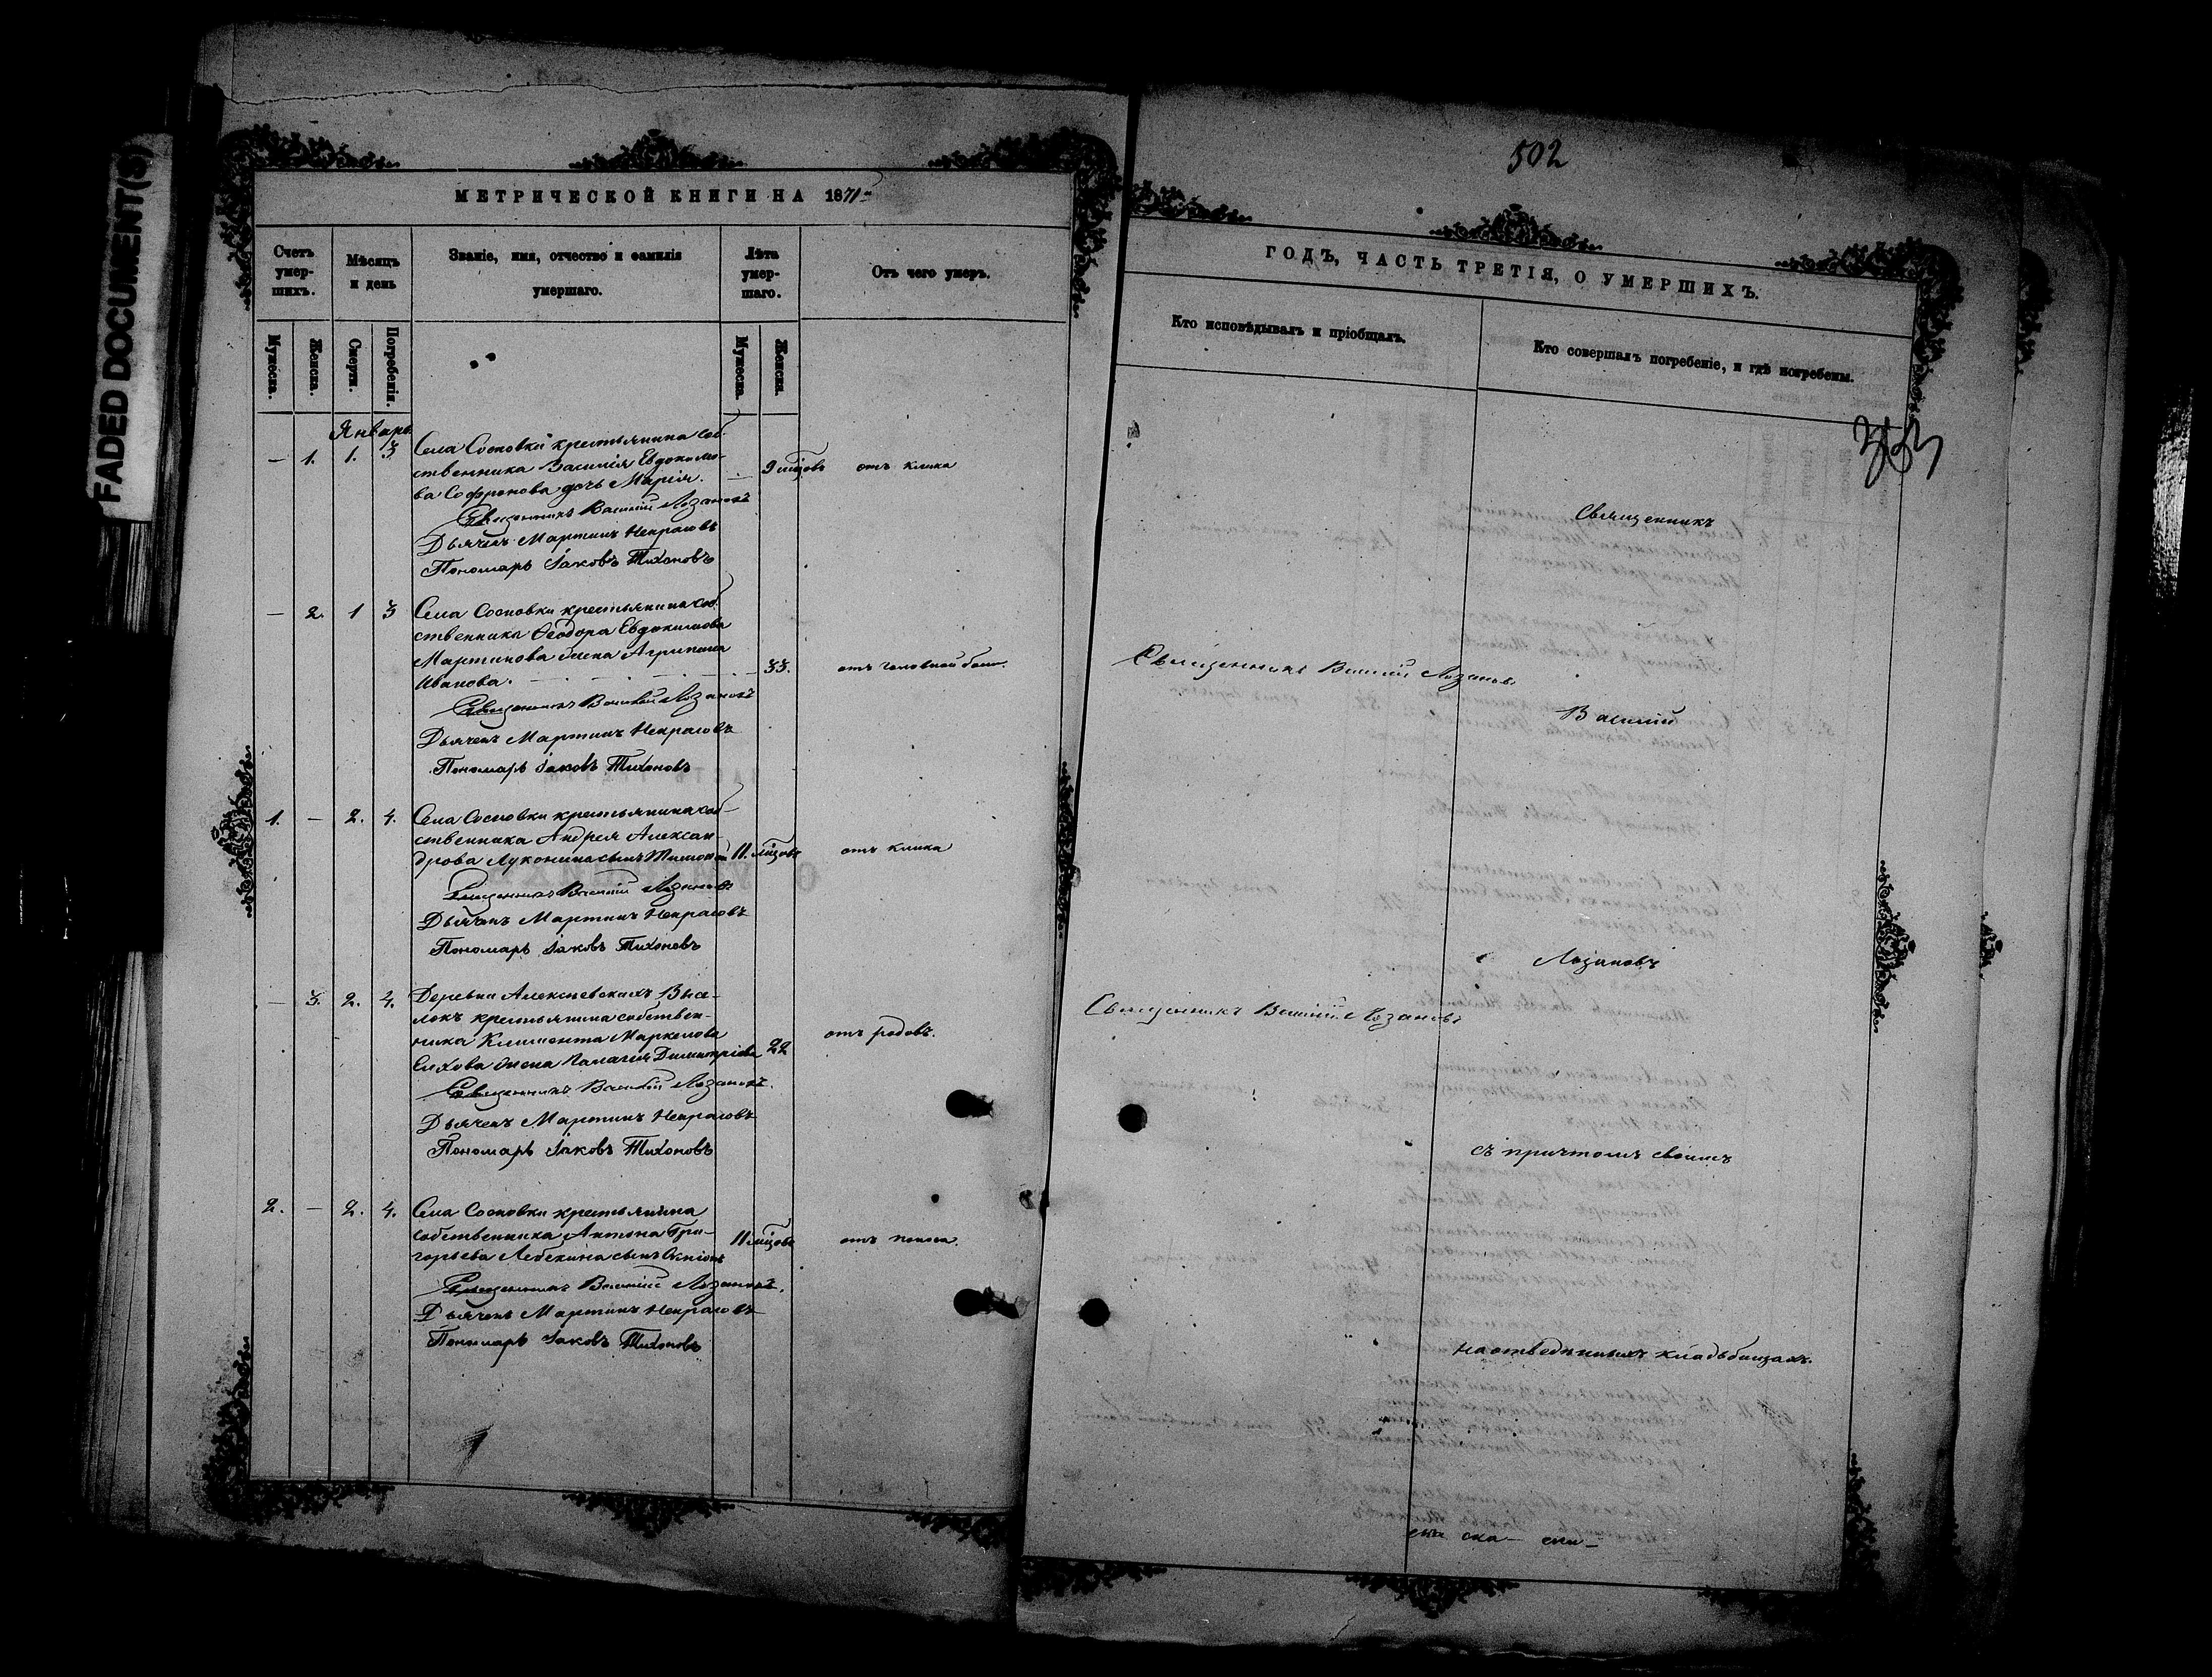 FADED DOCUMENT(S)
МЕТРИЧЕСКОЙ КНИГИ НА 1871
Счетъ умер-шихъ.
Мѣсяцъ и день
Званіе, имя, отчество и фамилія умершаго.
Лѣта умер-шаго.
Отъ чего умеръ.
Мужеска.
Женска.
Смерти.
Погребенія.
Мужеска.
Женска.
Январь
— 1. 1. 3
Села Сосновки крестьянина соб-
ственника Василія Евдокимо-
ва Софронова дочь Марія. — 9 мѣсцовъ отъ клика
Священникъ Василій Лозановъ
Дьячекъ Мартинъ Некрасовъ
Пономарь Іаковъ Тихоновъ
— 2. 1 3
Села Сосновки крестьянина соб-
ственника Ѳеодора Евдокимова
Мартинова жена Агрипина
Иванова. 33. отъ головной боли.
Священникъ Василій Лозановъ
Дьячекъ Мартинъ Некрасовъ
Пономарь Іаковъ Тихоновъ
1. — 2. 4.
Села Сосновки крестьянина соб-
ственника Андрея Алексан-
дрова Луконина сынъ Тимофей 11. мѣсцовъ отъ клика
Священникъ Василій Лозановъ
Дьячекъ Мартинъ Некрасовъ
Пономарь Іаковъ Тихоновъ
— 3. 2. 4.
Деревни Алексеевскихъ Высе-
локъ крестьянина собствен-
ника Климента Маркелова
жена Пелагия Димитріева 22 отъ родовъ.
Священникъ Василій Лозановъ.
Дьячекъ Мартинъ Некрасовъ
Пономарь Іаковъ Тихоновъ
2. — 2. 4.
Села Сосновки крестьянина
собственника Антона Гри-
горьева сынъ 11 мѣсцовъ отъ поноса.
Священникъ Василій Лозановъ.
Дьячекъ Мартинъ Некрасовъ
Пономарь Іаковъ Тихоновъ
502
ГОДЪ, ЧАСТЬ ТРЕТІЯ, О УМЕРШИХЪ.
Кто исповѣдывалъ и пріобщалъ.
Кто совершалъ погребеніе, и гдѣ погребены.
Священникъ
Священникъ Василій Лозановъ
Василій
Лозановъ
Священникъ Василій Лозановъ
съ причтомъ своимъ
на отведенныхъ кладбищахъ.